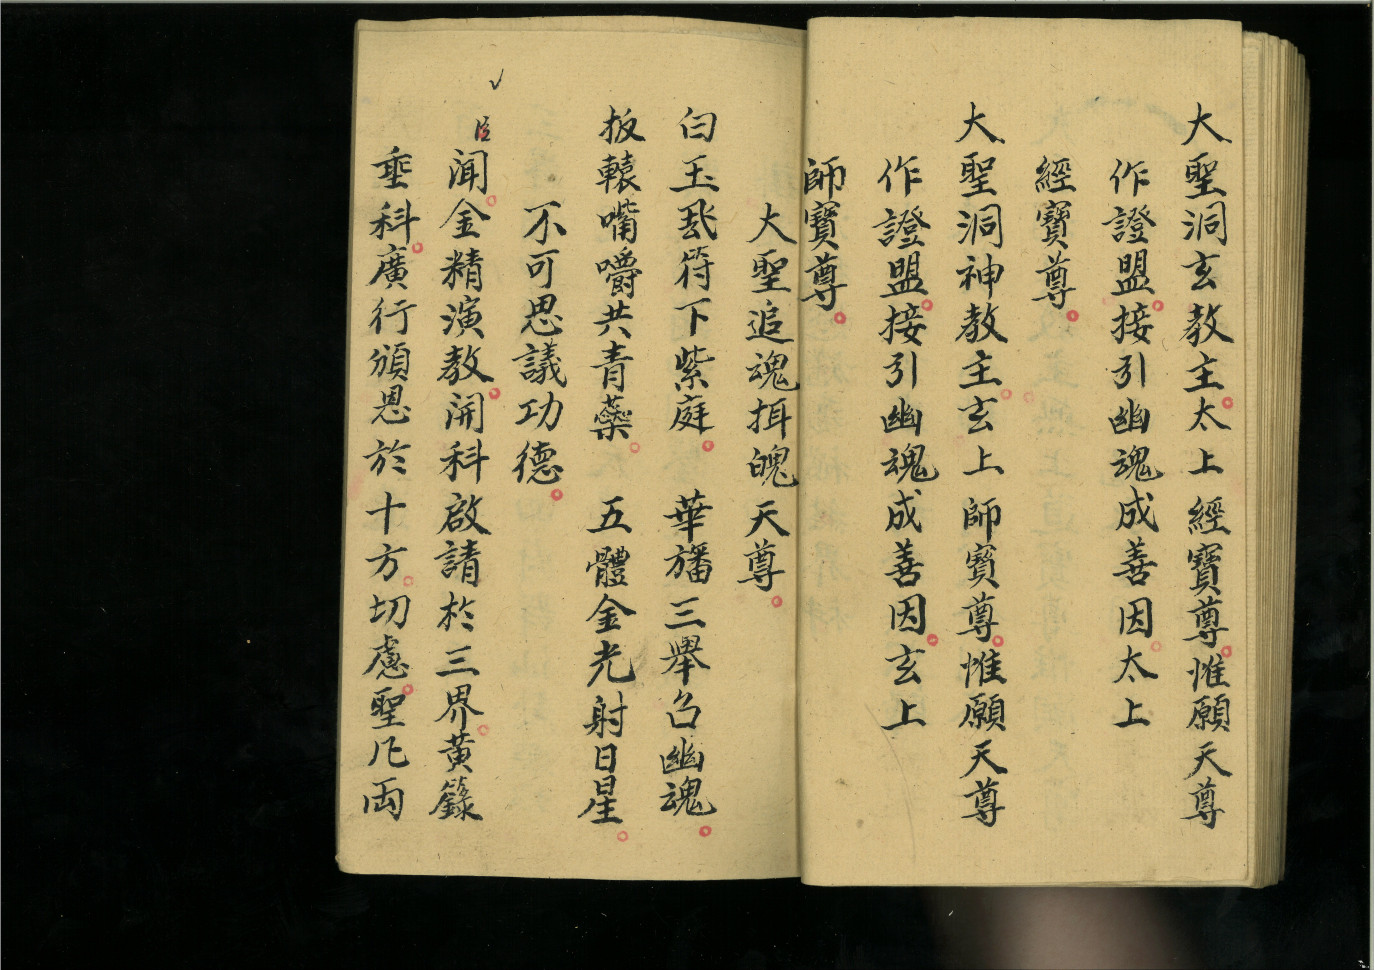 大聖洞玄教主太上經寶尊惟願天尊
作證盟接引幽魂成善因太上
經寶尊
大聖洞神教主玄上師寶尊惟願天尊
作證盟接引幽魂成善因玄上
師寶尊
大聖追魂揖魄天尊
白玉符下紫庭 華旛三舉召幽魂
扳轅嘴嚼共青蘂 五體金光射日星
不可思議功德
臣聞金精演教開科啟請於三界黃籙
垂科廣行頒恩於十方切慮聖凡両